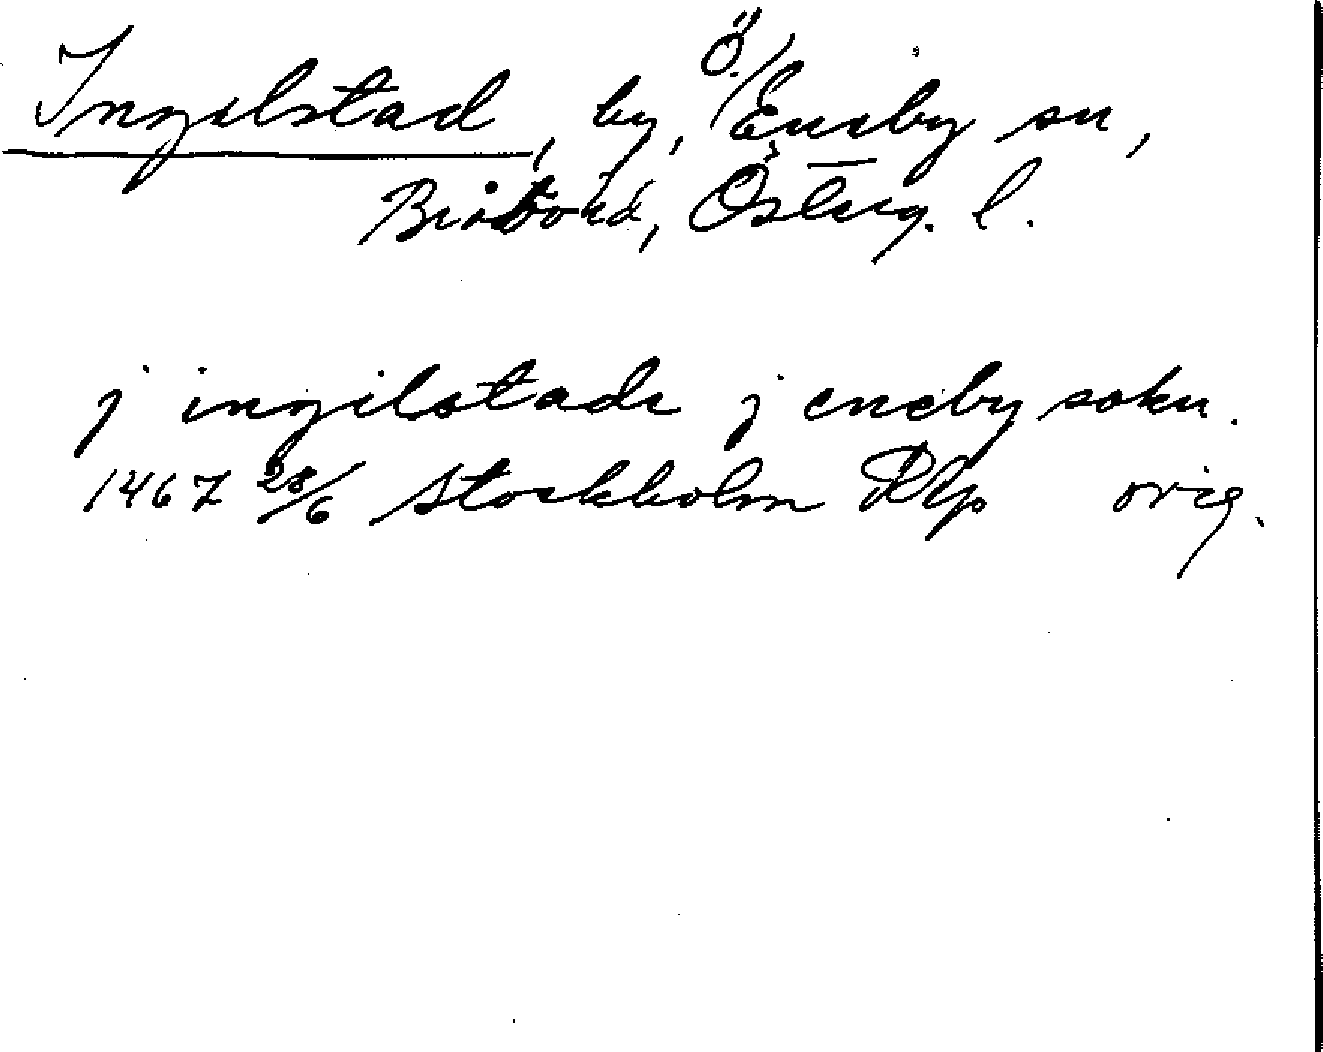 Ingelstad, by, Ö. Eneby sn,
Bråbo hd, Österg. l.
j ingilstade j eneby sokn.
1467 28/6 Stockholm RAp orig.